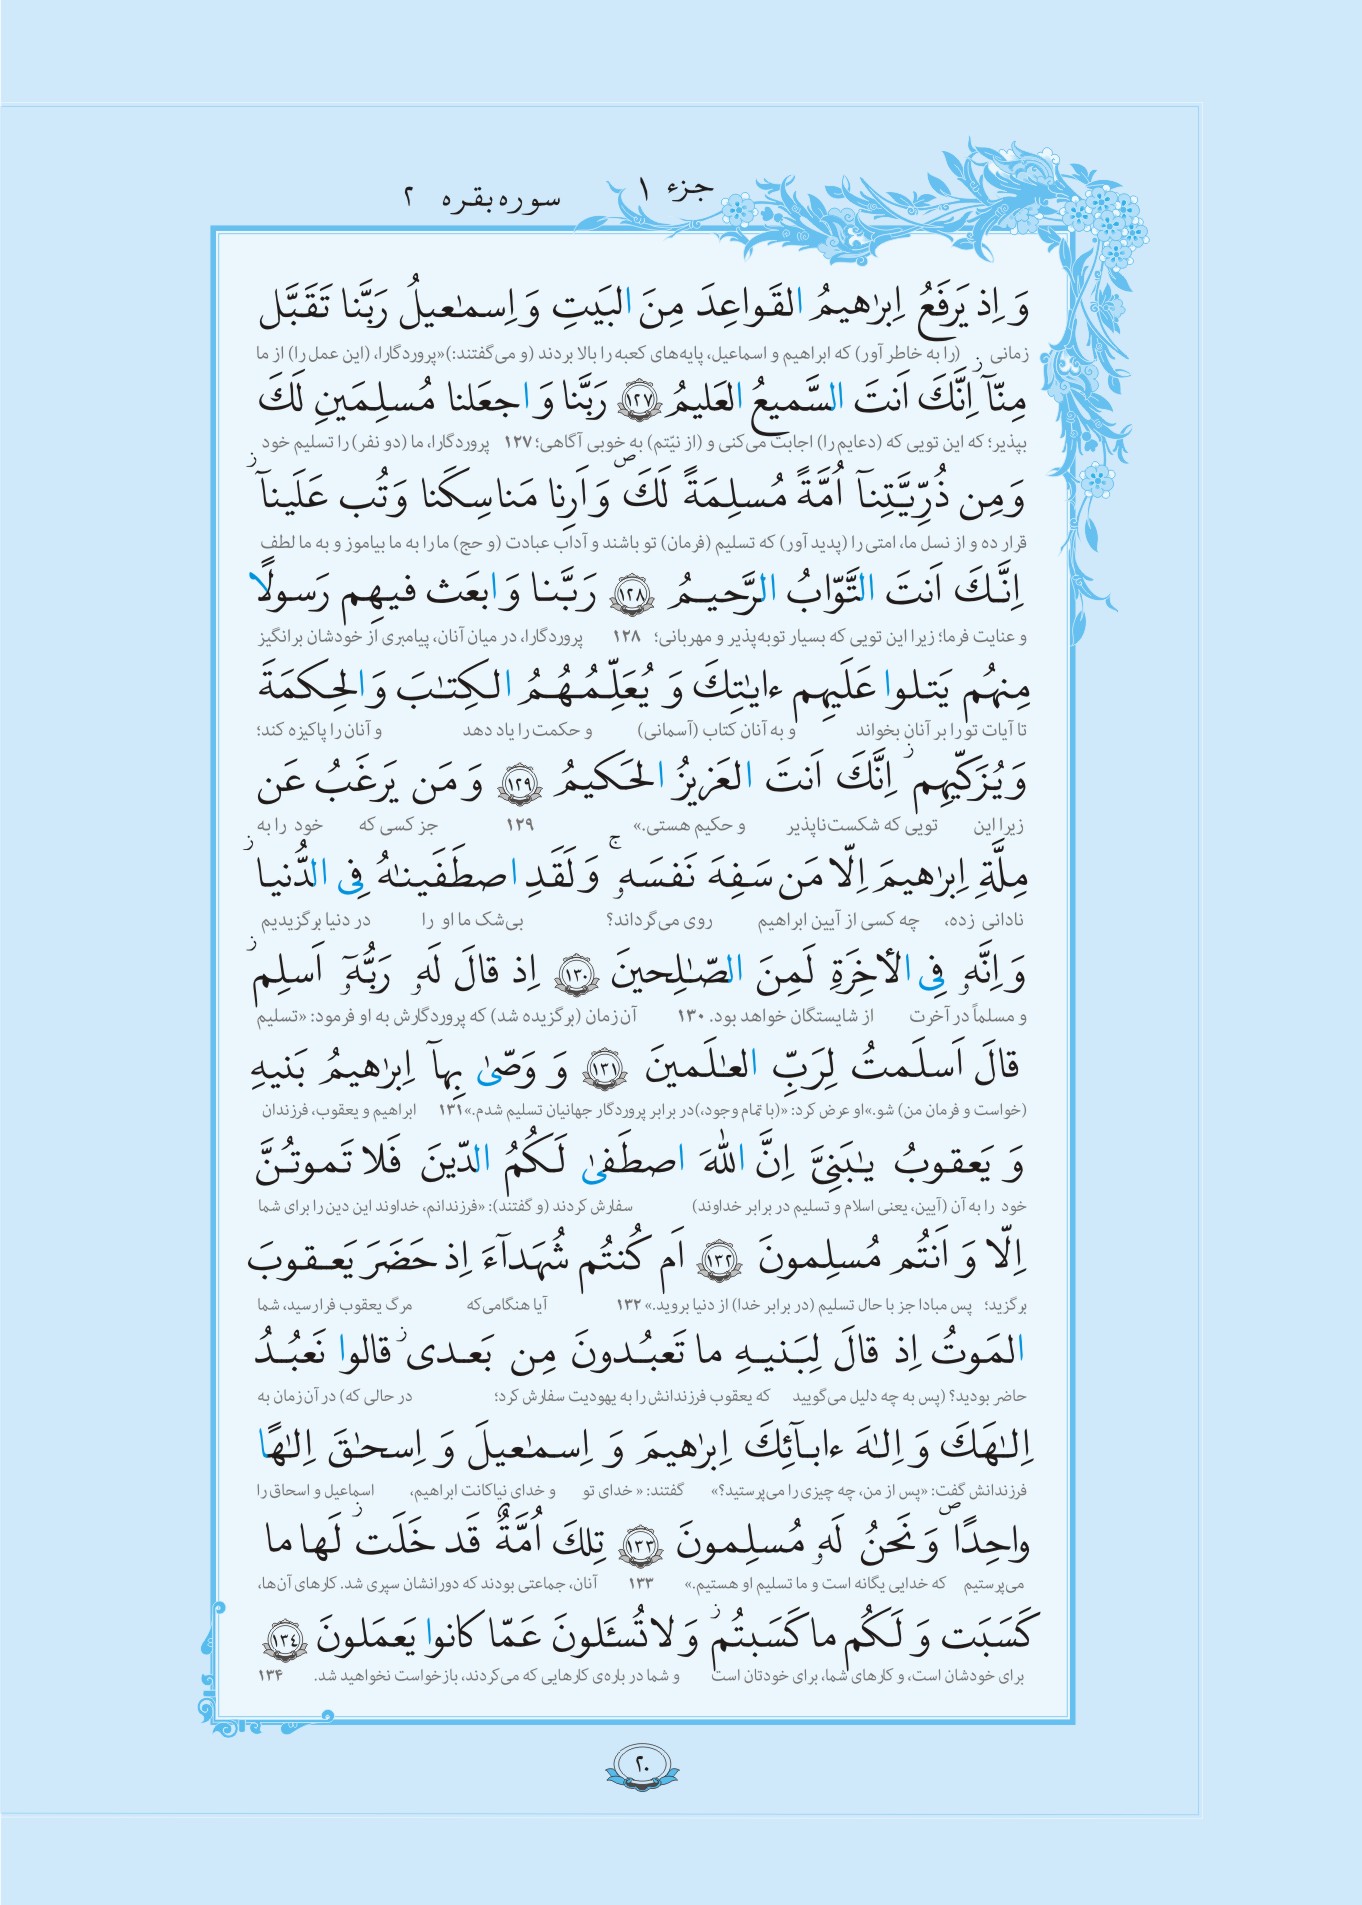 جزء ۱
سوره بقره ۲
وَ اِذ یَرفَعُ اِبرٰهیمُ القَواعِدَ مِنَ البَیتِ وَ اِسمٰعیلُ رَبَّنا تَقَبَّل
زمانی (را به خاطر آور) که ابراهیم و اسماعیل، پایه‌های کعبه را بالا بردند (و می‌گفتند:)«پروردگارا، (این عمل را) از ما
مِنّآ ز اِنَّکَ اَنتَ السَّمیعُ العَلیمُ ۱۲۷ رَبَّنا وَ اجعَلنا مُسلِمَینِ لَکَ
بپذیر؛ که این تویی که (دعایم را) اجابت می‌کنی و (از نیّتم) به خوبی آگاهی؛ ۱۲۷ پروردگارا، ما (دو نفر) را تسلیم خود
وَ مِن ذُرِّیَّتِنآ اُمَّةً مُسلِمَةً لَکَ ص وَ اَرِنا مَناسِکَنا وَ تُب عَلَینآ ز
قرار ده و از نسل ما، امتی را (پدید آور) که تسلیم (فرمان) تو باشند و آداب عبادت (و حج) ما را به ما بیاموز و به ما لطف
اِنَّکَ اَنتَ التَّوّابُ الرَّحیمُ ۱۲۸ رَبَّنا وَ ابعَث فیهِم رَسولًا
و عنایت فرما؛ زیرا این تویی که بسیار توبه‌پذیر و مهربانی؛ ۱۲۸ پروردگارا، در میان آنان، پیامبری از خودشان برانگیز
مِنهُم یَتلوا عَلَیهِم ءایٰتِکَ وَ یُعَلِّمُهُمُ الکِتٰبَ وَ الحِکمَةَ
تا آیات تو را بر آنان بخواند و به آنان کتاب (آسمانی) و حکمت را یاد دهد و آنان را پاکیزه کند؛
وَ یُزَکّیهِم ز اِنَّکَ اَنتَ العَزیزُ الحَکیمُ ۱۲۹ وَ مَن یَرغَبُ عَن
زیرا این تویی که شکست‌ناپذیر و حکیم هستی.» ۱۲۹ جز کسی که خود را به
مِلَّةِ اِبرٰهیمَ اِلّا مَن سَفِهَ نَفسَهٗ ج وَ لَقَدِ اصطَفَینٰهُ فِی الدُّنیا ز
نادانی زده، چه کسی از آیین ابراهیم روی می‌گرداند؟ بی‌شک ما او را در دنیا برگزیدیم
وَ اِنَّهٗ فِی الأخِرَةِ لَمِنَ الصّٰلِحینَ ۱۳۰ اِذ قالَ لَهٗ رَبُّهٗٓ اَسلِم ز
و مسلماً در آخرت از شایستگان خواهد بود. ۱۳۰ آن زمان (برگزیده شد) که پروردگارش به او فرمود: «تسلیم
قالَ اَسلَمتُ لِرَبِّ العٰلَمینَ ۱۳۱ وَ وَصّیٰ بِهآ اِبرٰهیمُ بَنیهِ
(خواست و فرمان من) شو.»او عرض کرد: «(با تمام وجود،)در برابر پروردگار جهانیان تسلیم شدم.»۱۳۱ ابراهیم و یعقوب، فرزندان
وَ یَعقوبُ یٰبَنِیَّ اِنَّ اللّٰهَ اصطَفیٰ لَکُمُ الدّینَ فَلا تَموتُنَّ
خود را به آن (آیین، یعنی اسلام و تسلیم در برابر خداوند) سفارش کردند (و گفتند): «فرزندانم، خداوند این دین را برای شما
اِلّا وَ اَنتُم مُسلِمونَ ۱۳۲ اَم کُنتُم شُهَدآءَ اِذ حَضَرَ یَعقوبَ
برگزید؛ پس مبادا جز با حال تسلیم (در برابر خدا) از دنیا بروید.» ۱۳۲ آیا هنگامی‌که مرگ یعقوب فرارسید، شما
المَوتُ اِذ قالَ لِبَنیهِ ما تَعبُدونَ مِن بَعدی ز قالوا نَعبُدُ
حاضر بودید؟ (پس به چه دلیل می‌گویید که یعقوب فرزندانش را به یهودیت سفارش کرد؛ در حالی که) در آن زمان به
اِلٰهَکَ وَ اِلٰهَ ءابآئِکَ اِبرٰهیمَ وَ اِسمٰعیلَ وَ اِسحٰقَ اِلٰهًا
فرزندانش گفت: «پس از من، چه چیزی را می‌پرستید؟» گفتند: « خدای تو و خدای نیاکانت ابراهیم، اسماعیل و اسحاق را
واحِدًا ص وَ نَحنُ لَهٗ مُسلِمونَ ۱۳۳ تِلکَ اُمَّةٌ قَد خَلَت ز لَها ما
می‌پرستیم که خدایی یگانه است و ما تسلیم او هستیم.» ۱۳۳ آنان، جماعتی بودند که دورانشان سپری شد. کارهای آن‌ها،
کَسَبَت وَ لَکُم ما کَسَبتُم ز وَ لا تُسئَلونَ عَمّا کانوا یَعمَلونَ ۱۳٤
برای خودشان است، و کارهای شما، برای خودتان است و شما در باره‌ی کارهایی که می‌کردند، بازخواست نخواهید شد. ۱۳۴
۲۰